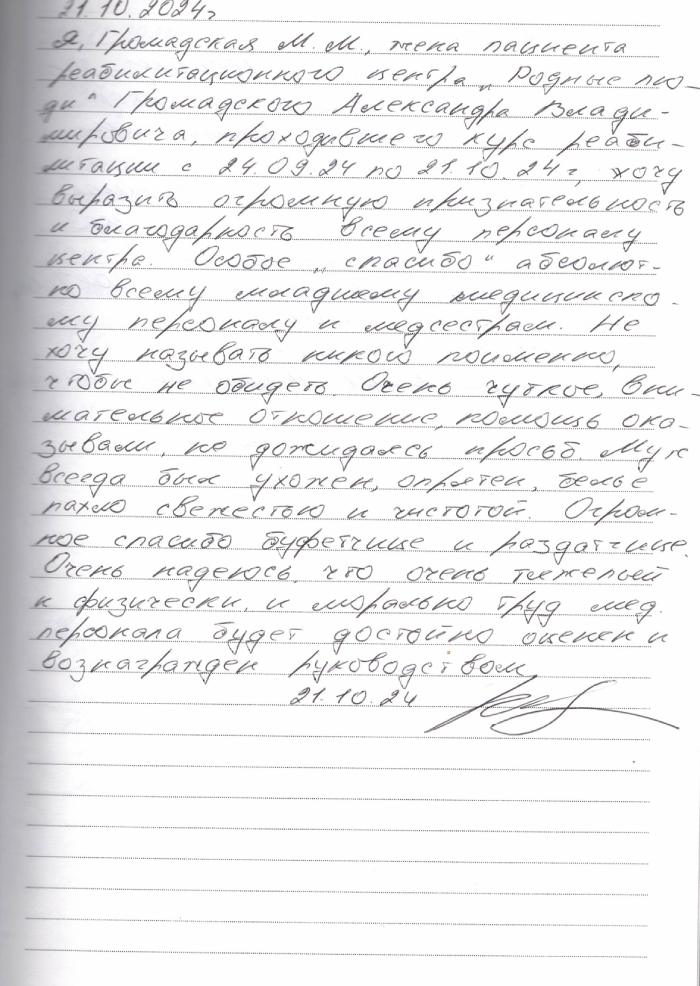 21.10.2024г
Я, Громадская М. М., жена пациента
реабилитационного центра „Родные лю-
ди" Громадского Александра Влади-
мировича, проходившего курс реаби-
литации с 24.09.24 по 21.10.24г, хочу
выразить огромную признательность
и благодарность всему персоналу
центра. Особое „спасибо" абсолют-
но всему младшему медицинско-
му персоналу и медсестрам. Не
хочу называть никого поименно,
чтобы не обидеть. Очень чуткое, вни-
мательное отношение, помощь ока-
зывали, не дожидаясь просьб. Муж
всегда был ухожен, опрятен, белье
пахло свежестью и чистотой. Огром-
ное спасибо буфетчице и раздатчице.
Очень надеюсь, что очень тяжелый
и физически, и морально труд мед.
персонала будет достойно оценен и
вознагражден руководством
21.10.24